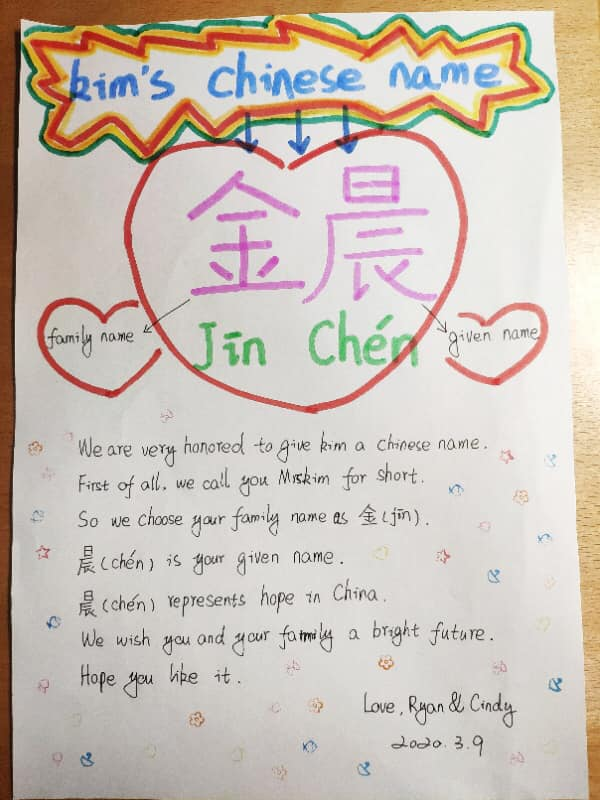 kim's chinese name
金晨
family name
Jīn Chén
given name
We are very honored to give kim a chinese name.
First of all, we call you Mrskim for short.
So we choose your family name as 金(jīn).
晨(chén) is your given name.
晨(chén) represents hope in China.
We wish you and your family a bright future.
Hope you like it.
Love, Ryan & Cindy
2020.3.9